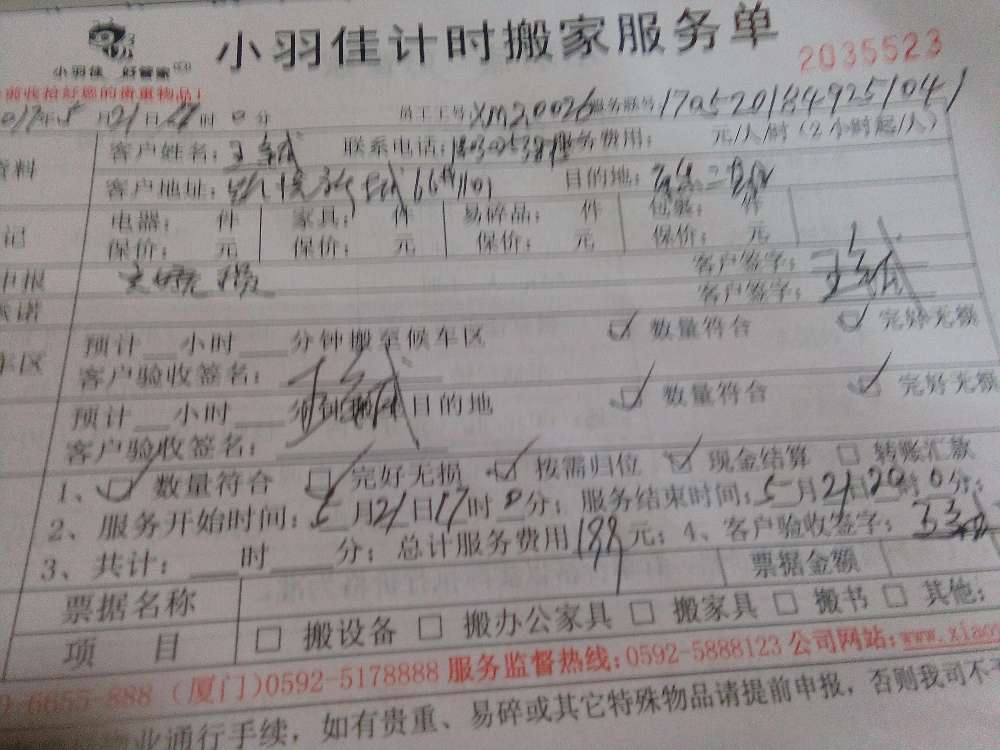 小羽佳计时搬家服务单
2035523
小羽佳 好管家
前收拾好您的贵重物品!
2017年5月21日17时0分 员工工号:XM20026 服务账号:1705201849251041
客户姓名: 联系电话: 服务费用: 元/人/时(2小时起/人)
资料
客户地址: 目的地:
电器: 件 家具: 件 易碎品: 件 包装: 件
记
保价: 元 保价: 元 保价: 元 保价: 元
客户签字:
申报
客户签字:
承诺
预计 小时 分钟搬至候车区 数量符合 完好无损
车区
客户验收签名:
预计 小时 分钟 目的地 数量符合 完好无损
客户验收签名:
1、 数量符合 完好无损 按需归位 现金结算 转账汇款
2、服务开始时间:5月21日17时0分;服务结束时间:5月21日20时0分;
3、共计: 时 分;总计服务费用 元;4、客户验收签字:
票据名称 票据金额
项 目 搬设备 搬办公家具 搬家具 搬书 其他:
-6655-888 (厦门)0592-5178888 服务监督热线:0592-5888123 公司网站:www.xiao
业通行手续,如有贵重、易碎或其它特殊物品请提前申报,否则我司不